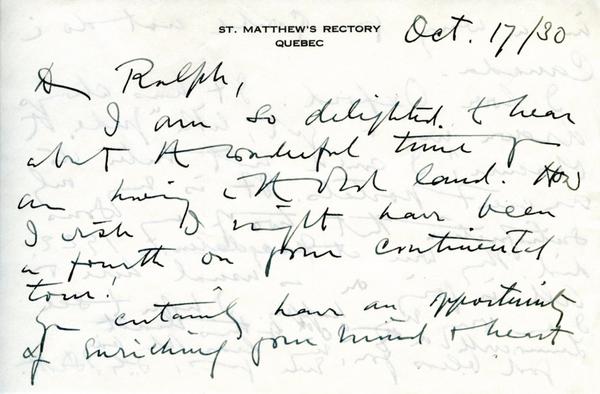 ST. MATTHEW'S RECTORY
QUEBEC
Oct. 17/30
Dr Ralph,
I am so delighted to hear
abt the wonderful time you
are having in the Old land. How
I wish I might have been
a fourth on your continental
tour!
You certainly have an opportunity
of enriching your mind & heart